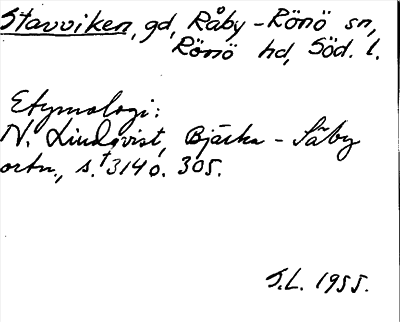 Stavviken, gd, Råby-Rönö sn,
Rönö hd, Söd. l.
Etymologi:
N. Lindqvist, Bjärka-Säby
ortn., s. 314 o. 305.
S.L. 1955.